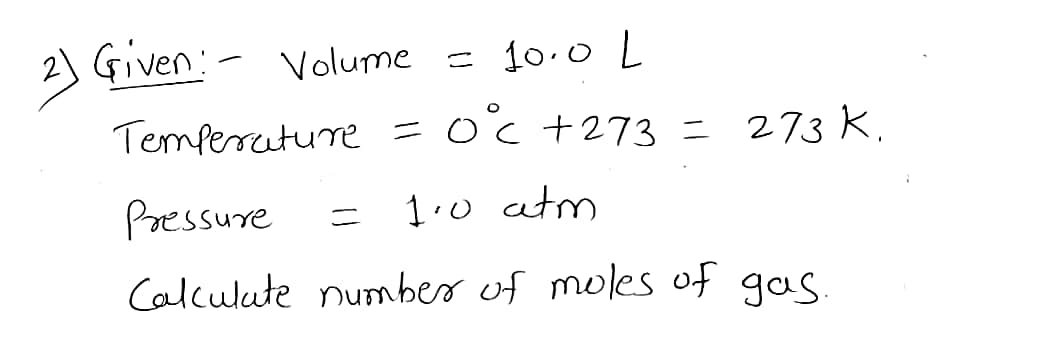 2) Given:- Volume = 10.0 L
Temperature = 0°C +273 = 273 K.
Pressure = 1.0 atm
Calculate number of moles of gas.